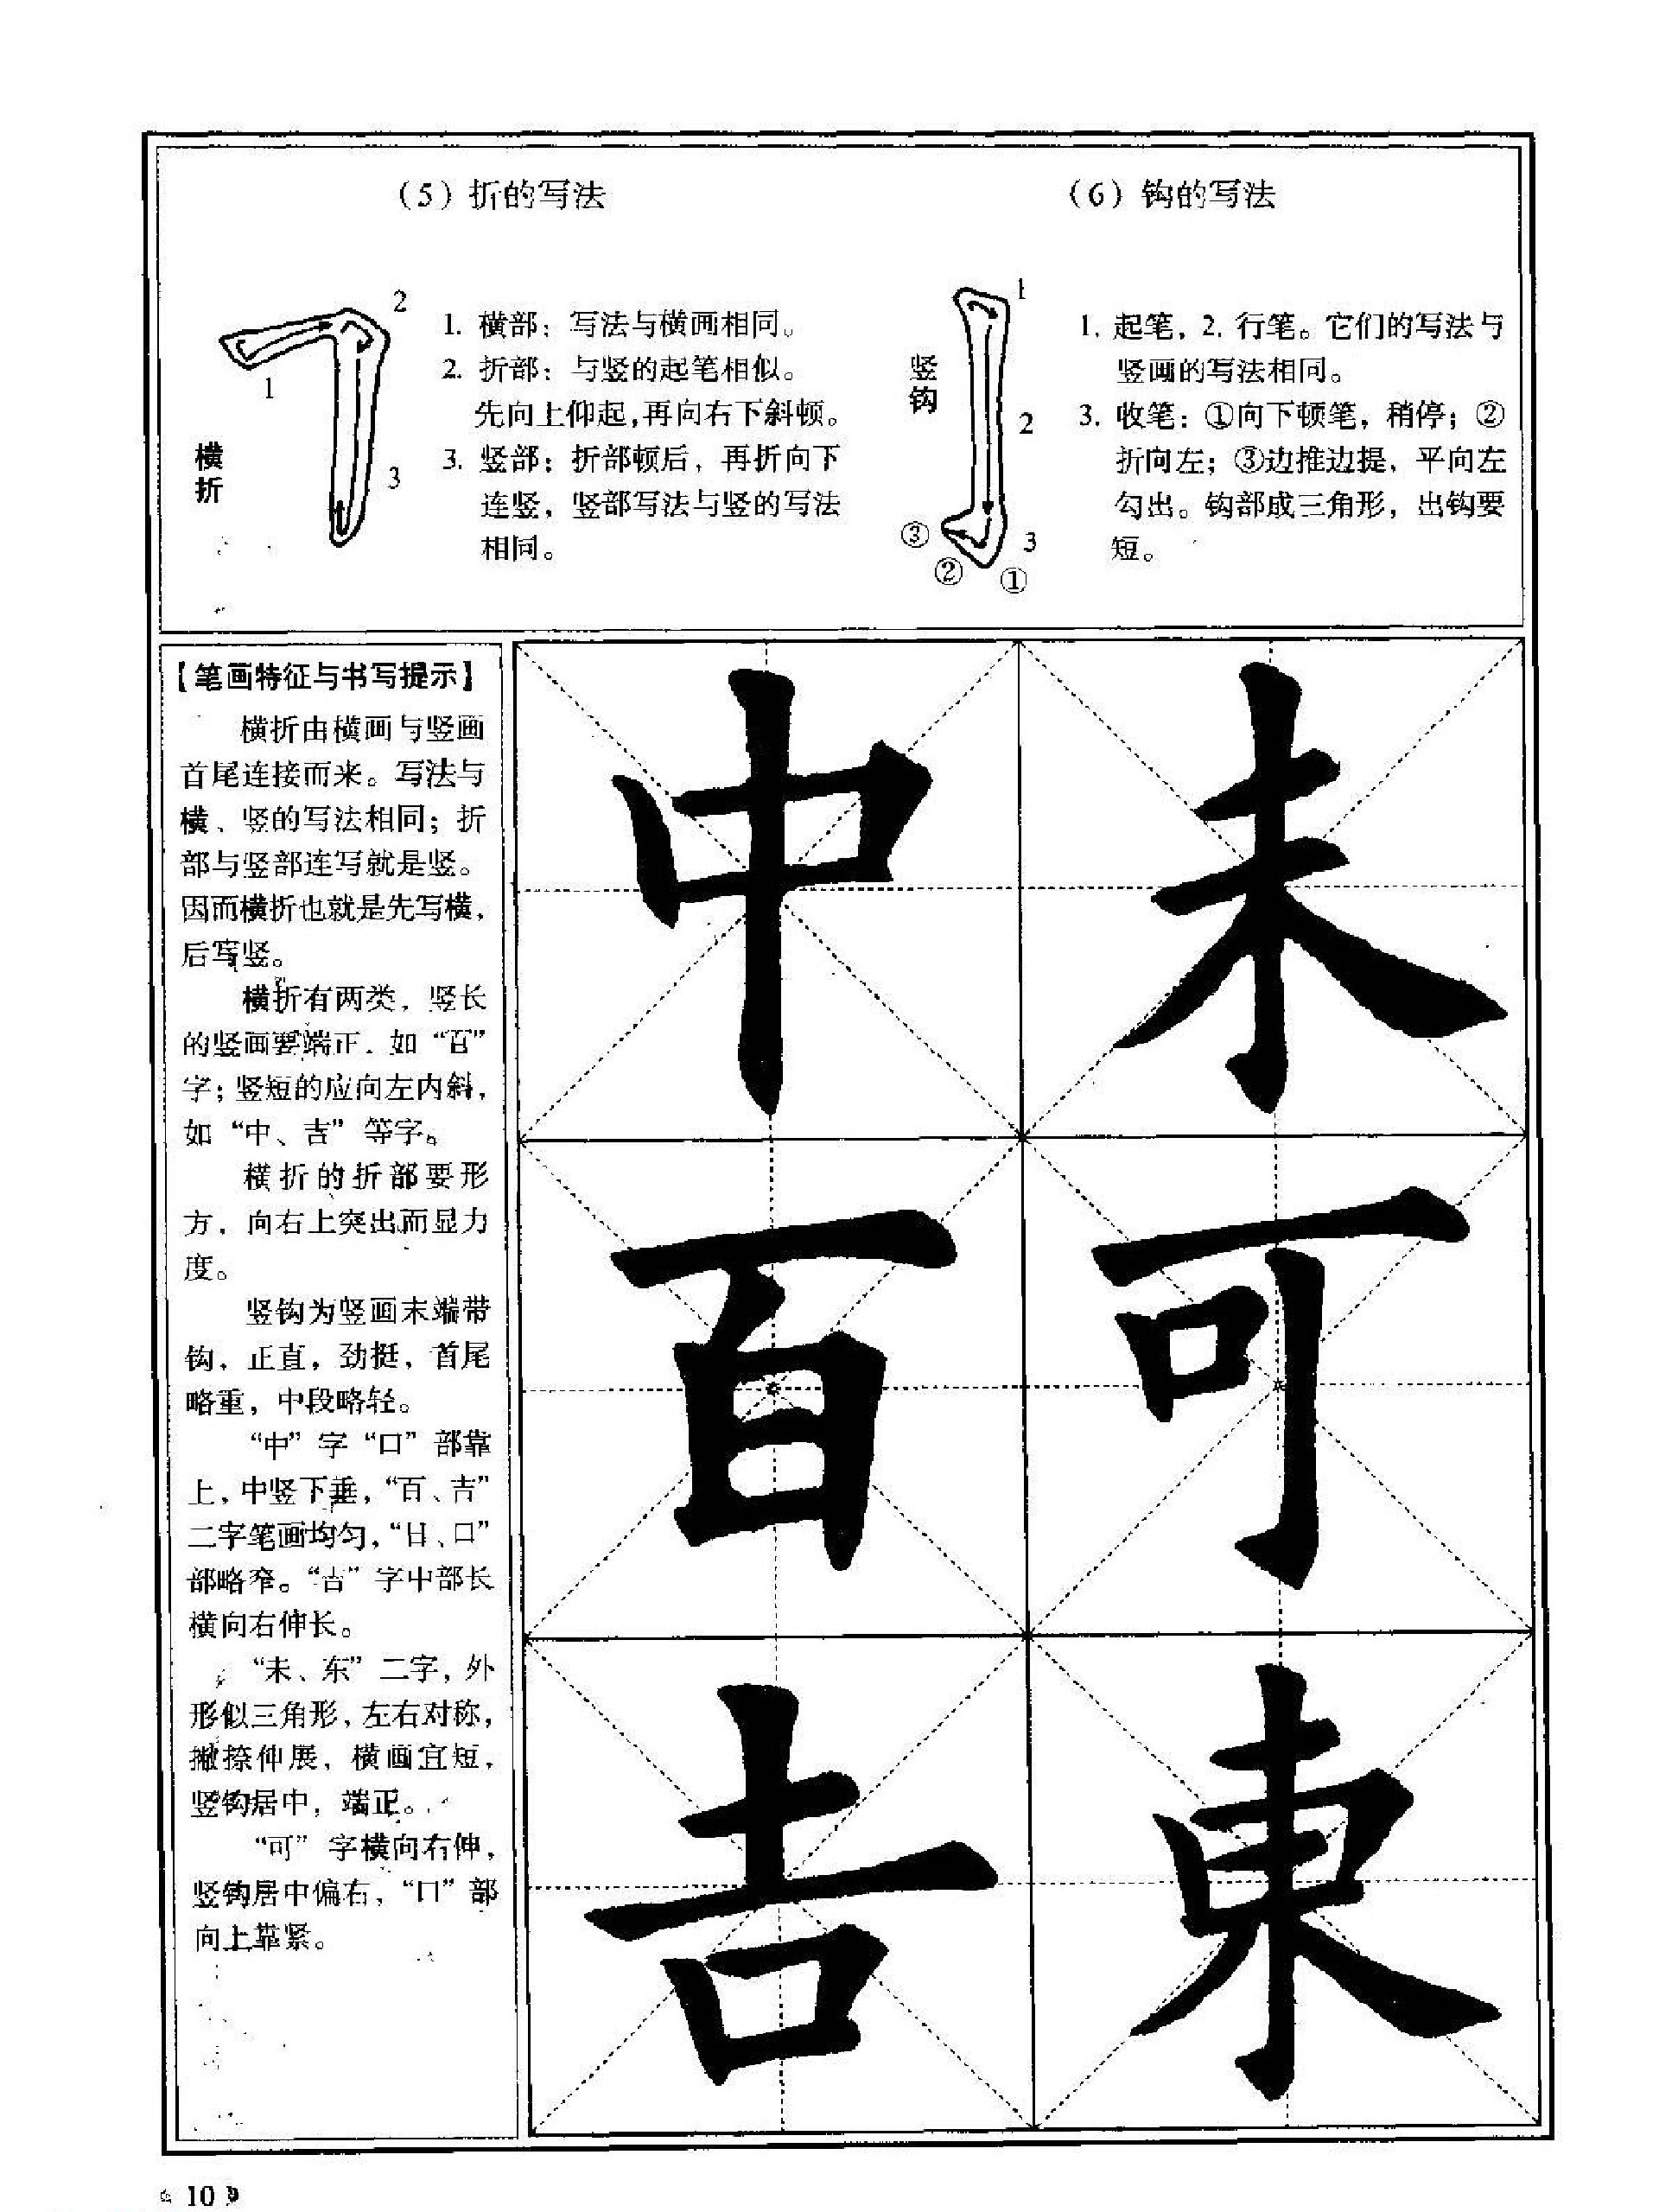 (5) 折的写法
2
1
3
横折
1. 横部：写法与横画相同。
2. 折部：与竖的起笔相似。
先向上仰起，再向右下斜顿。
3. 竖部：折部顿后，再折向下
连竖，竖部写法与竖的写法
相同。
(6) 钩的写法
竖钩
1
2
3
③
②
①
1. 起笔，2. 行笔。它们的写法与
竖画的写法相同。
3. 收笔：①向下顿笔，稍停；②
折向左；③边推边提，平向左
勾出。钩部成三角形，出钩要
短。
【笔画特征与书写提示】
横折由横画与竖画
首尾连接而来。写法与
横、竖的写法相同；折
部与竖部连写就是竖。
因而横折也就是先写横，
后写竖。
横折有两类，竖长
的竖画要端正，如“百”
字；竖短的应向左内斜，
如“中、吉”等字。
横折的折部要形
方，向右上突出而显力
度。
竖钩为竖画末端带
钩，正直，劲挺，首尾
略重，中段略轻。
“中”字“口”部靠
上，中竖下垂，“百、吉”
二字笔画均匀，“日、口”
部略窄。“吉”字中部长
横向右伸长。
“未、东”二字，外
形似三角形，左右对称，
撇捺伸展，横画宜短，
竖钩居中，端正。
“可”字横向右伸，
竖钩居中偏右，“口”部
向上靠紧。
中 未
百 可
吉 東
10